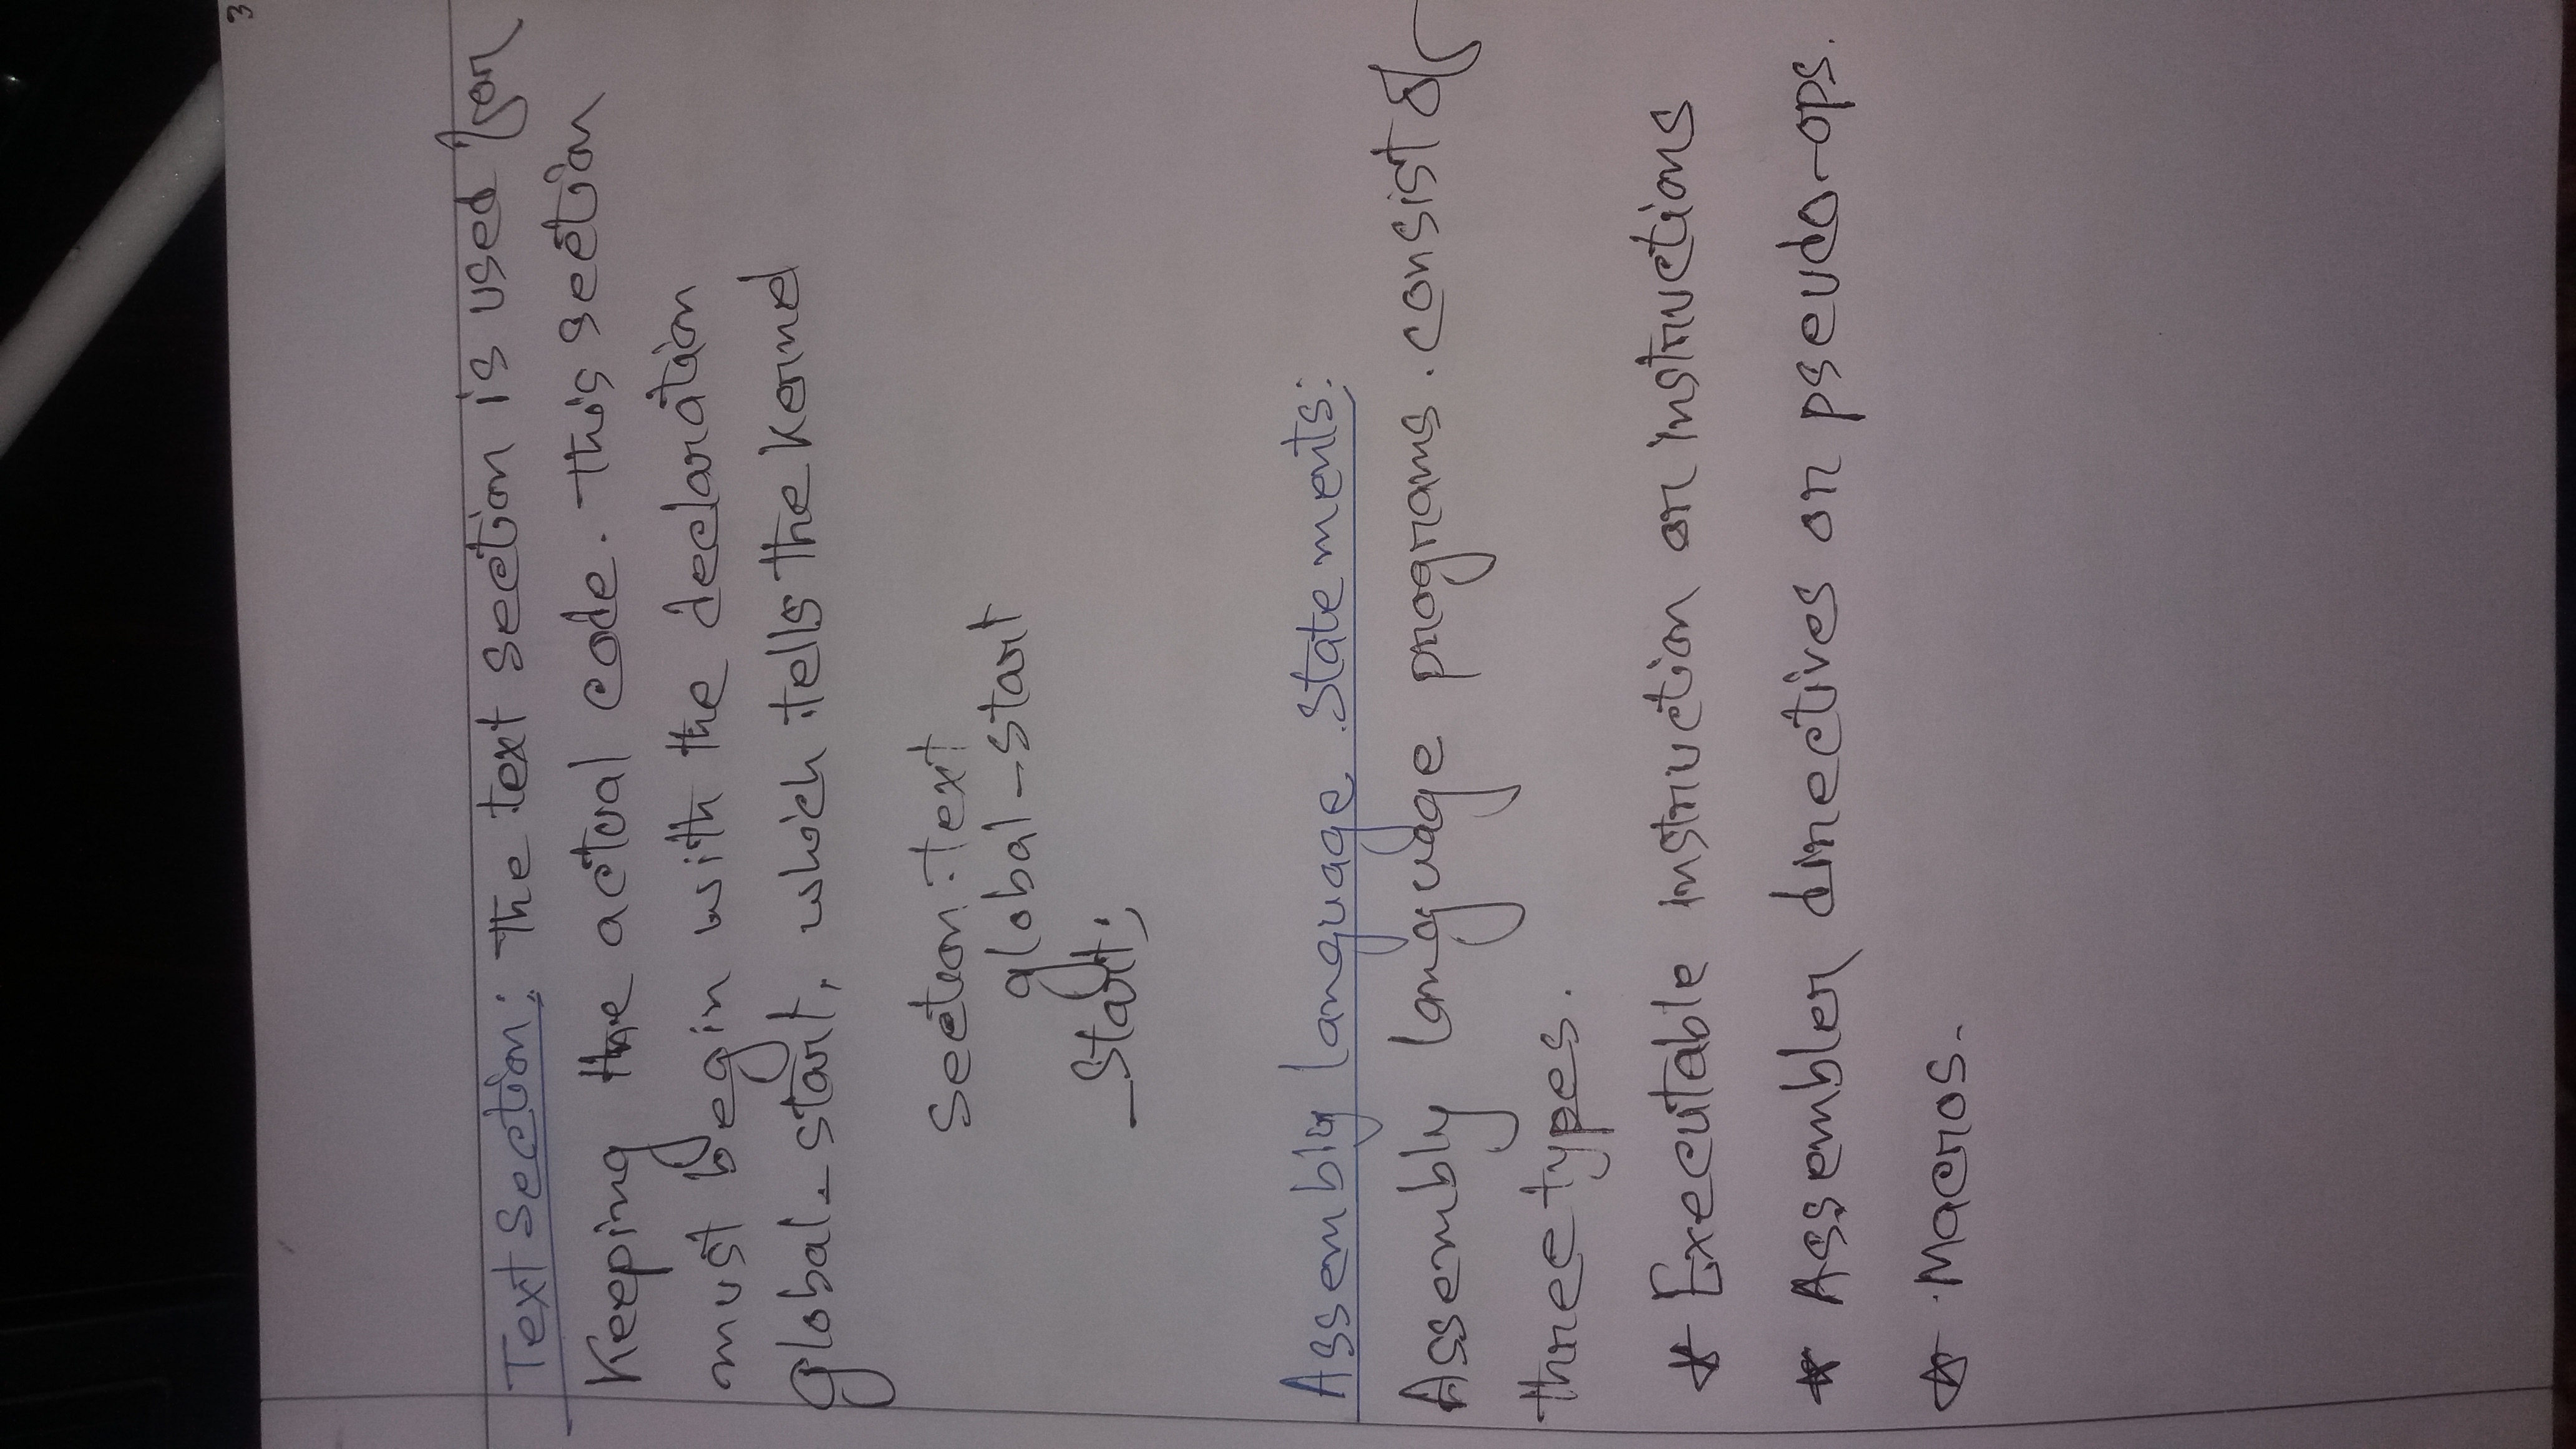 3
Text Section: The text section is used for
Keeping the actual code. This section
must begin with the declaration
global_start, which tells the Kernel
Section .text
global_start
_Start;
Assembly language statements:
Assembly language programs. consist of
three types.
* Executable instruction or instructions
* Assembler directives or pseudo-ops.
* Macros.